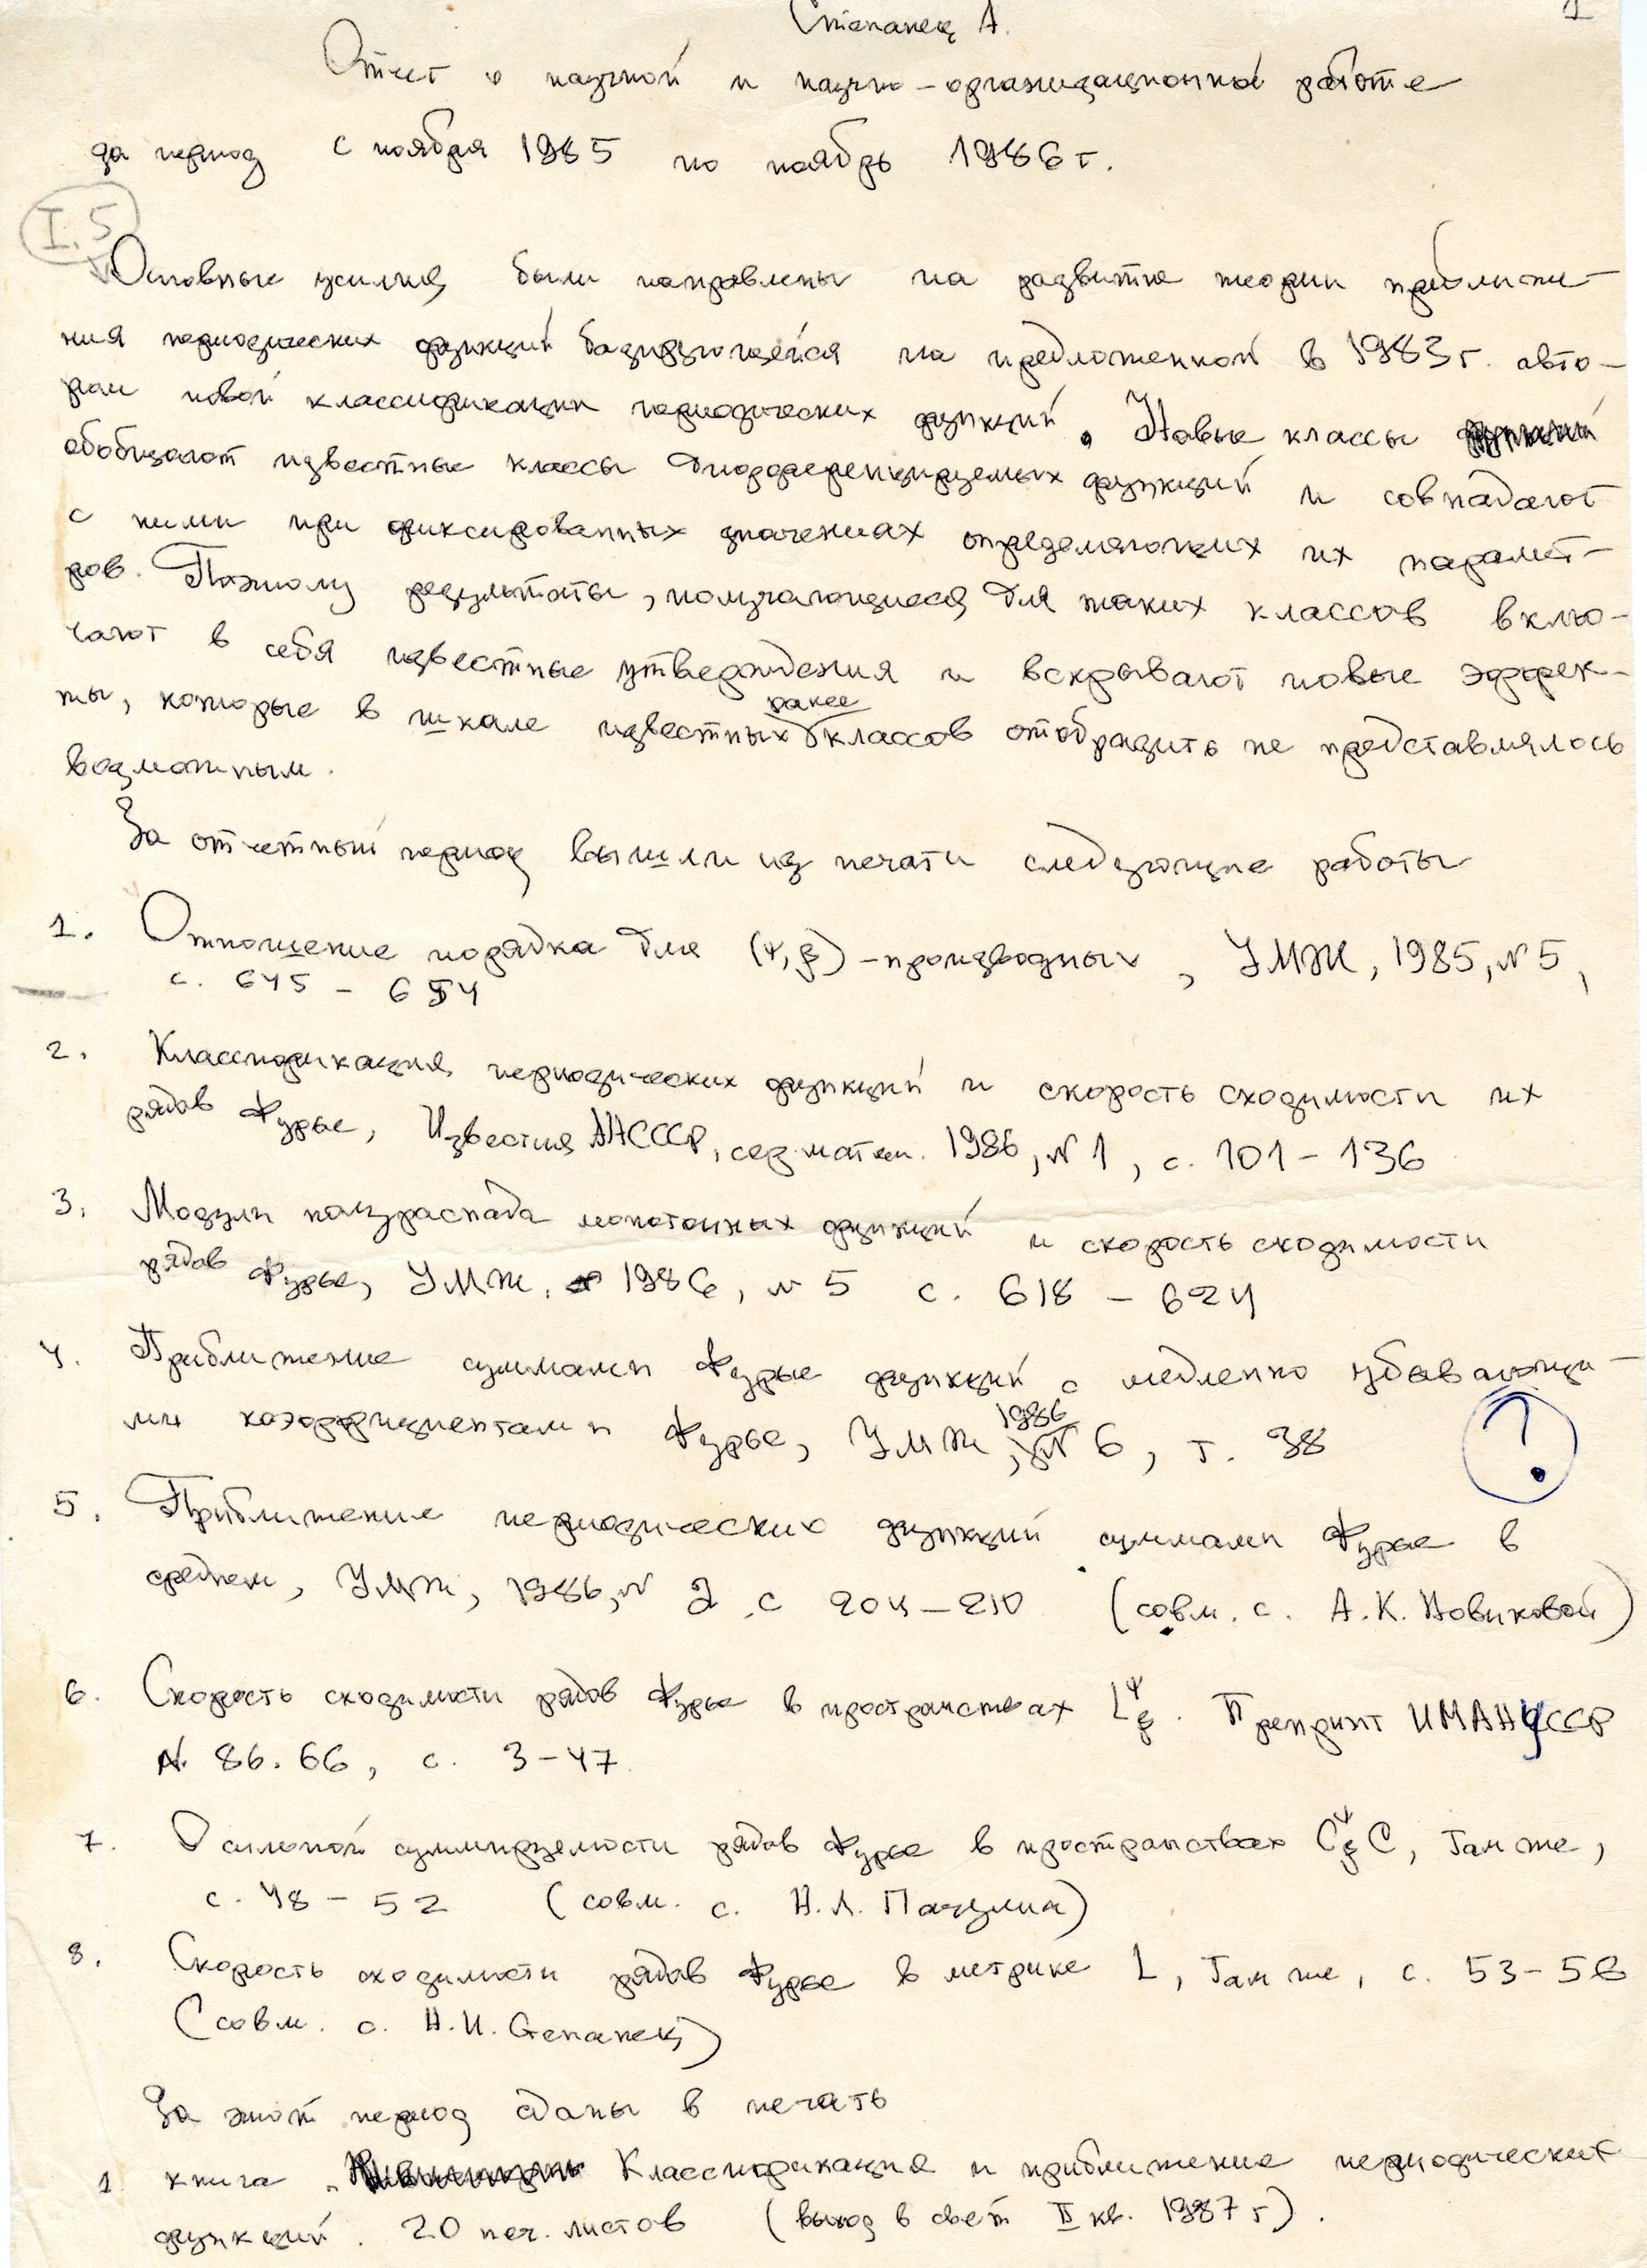 1
Степанец А.
Отчет о научной и научно-организационной работе
за период с ноября 1985 по ноябрь 1986 г.
I.5
Основные усилия были направлены на развитие теории приближе-
ния периодических функций базирующейся на предложенной в 1983 г. авто-
ром новой классификации периодических функций. Новые классы
обобщают известные классы дифференцируемых функций и совпадают
с ними при фиксированных значениях определяющих их парамет-
ров. Поэтому результаты, получающиеся для таких классов вклю-
чают в себя известные утверждения и вскрывают новые эффек-
ты, которые в шкале известных ранее классов отобразить не представлялось
возможным.
За отчетный период вышли из печати следующие работы
1. Отношение порядка для (ψ,β)-производных, УМЖ, 1985, N 5,
с. 645 - 654
2. Классификация периодических функций и скорость сходимости их
рядов Фурье, Известия АНСССР, сер. матем. 1986, N 1, с. 101-136
3. Модули полураспада монотонных функций и скорость сходимости
рядов Фурье, УМЖ, 1986, N 5 с. 618 - 624
4. Приближение суммами Фурье функций с медленно убывающи-
ми коэффициентами Фурье, УМЖ, 1986 N 6, т. 38
?
5. Приближение периодических функций суммами Фурье в
среднем, УМЖ, 1986, N 2, с 204-210 (совм. с. А.К. Новиковой)
6. Скорость сходимости рядов Фурье в пространствах L^ψ_β. Препринт ИМАНУССР
N. 86.66, с. 3-47.
7. О сильной суммируемости рядов Фурье в пространствах C^ψ_β C, Там же,
с. 48 - 52 (совм. с. Н.Л. Пачулиа)
8. Скорость сходимости рядов Фурье в метрике L, Там же, с. 53-58
(совм. с. Н.И. Степанец)
За этот период сданы в печать
1 книга. Классификация и приближение периодических
функций. 20 печ. листов (выход в свет II кв. 1987 г).